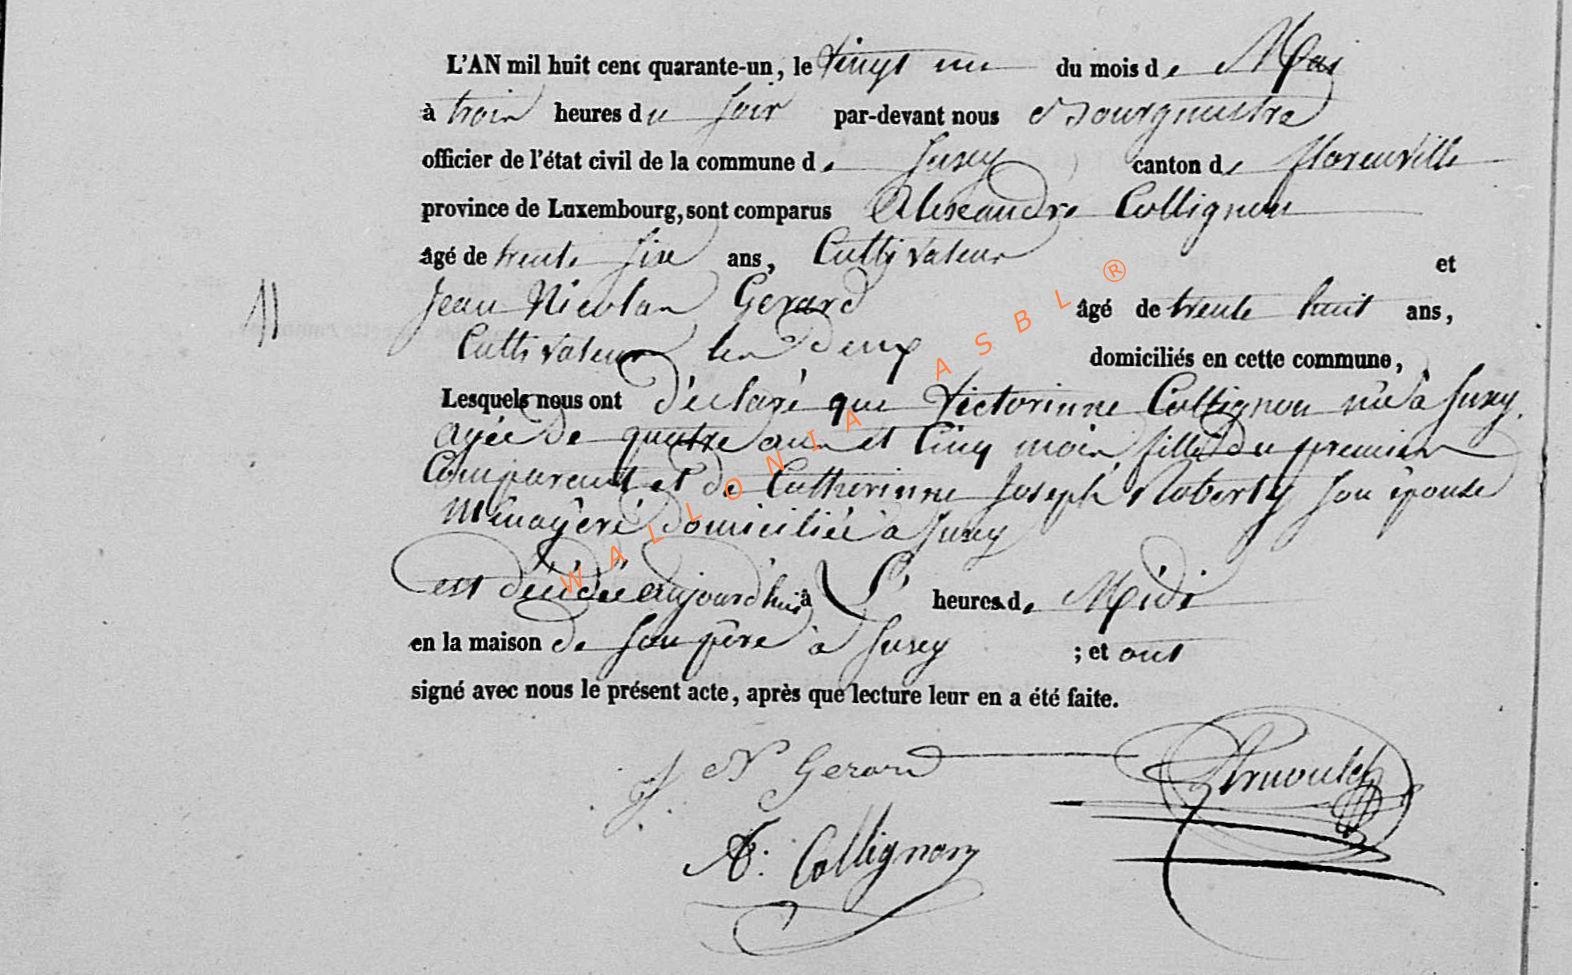 L'AN mil huit cent quarante-un, le vingt un du mois de Mai
à trois heures du soir par-devant nous Bourgmestre
officier de l'état civil de la commune de Suxy canton de florenville
province de Luxembourg, sont comparus Alexandre Collignon
âgé de trente six ans, Cultivateur et
11
Jean Nicolas Gerard âgé de trente huit ans,
Cultivateur les deux domiciliés en cette commune,
Lesquels nous ont déclaré que Victorinne Collignon née à Suxy.
agée de quatre ans et Cinq mois, fille du premier
Comparent et de Catherinne Joseph Roberty son épouse
Ménagère domiciliée à Suxy
est décédée aujourd'hui à heures de Midi
en la maison de son père à Suxy ; et ont
signé avec nous le présent acte, après que lecture leur en a été faite.
J N Gerard
A: Collignon
WALLONIA ASBL ®